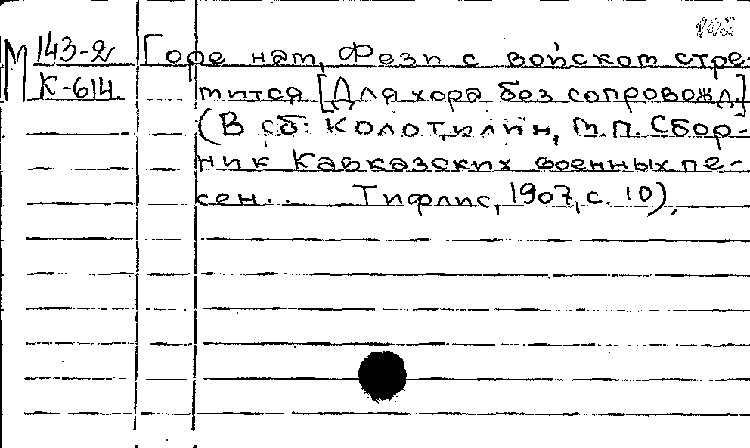 М 143-2 Горе нам, Фези с войском стре-
К-614 мится [Для хора без сопровожд.]
(В сб: Колотилин, М.П. Сбор-
ник Кавказских военных пе-
сен.. Тифлис, 1907, с. 10).